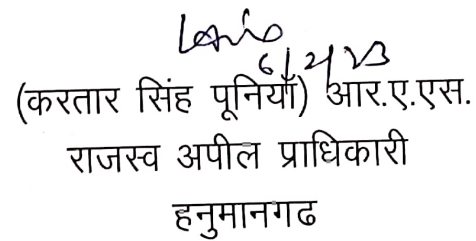 6/2/23
(करतार सिंह पूनियाँ) आर.ए.एस.
राजस्व अपील प्राधिकारी
हनुमानगढ